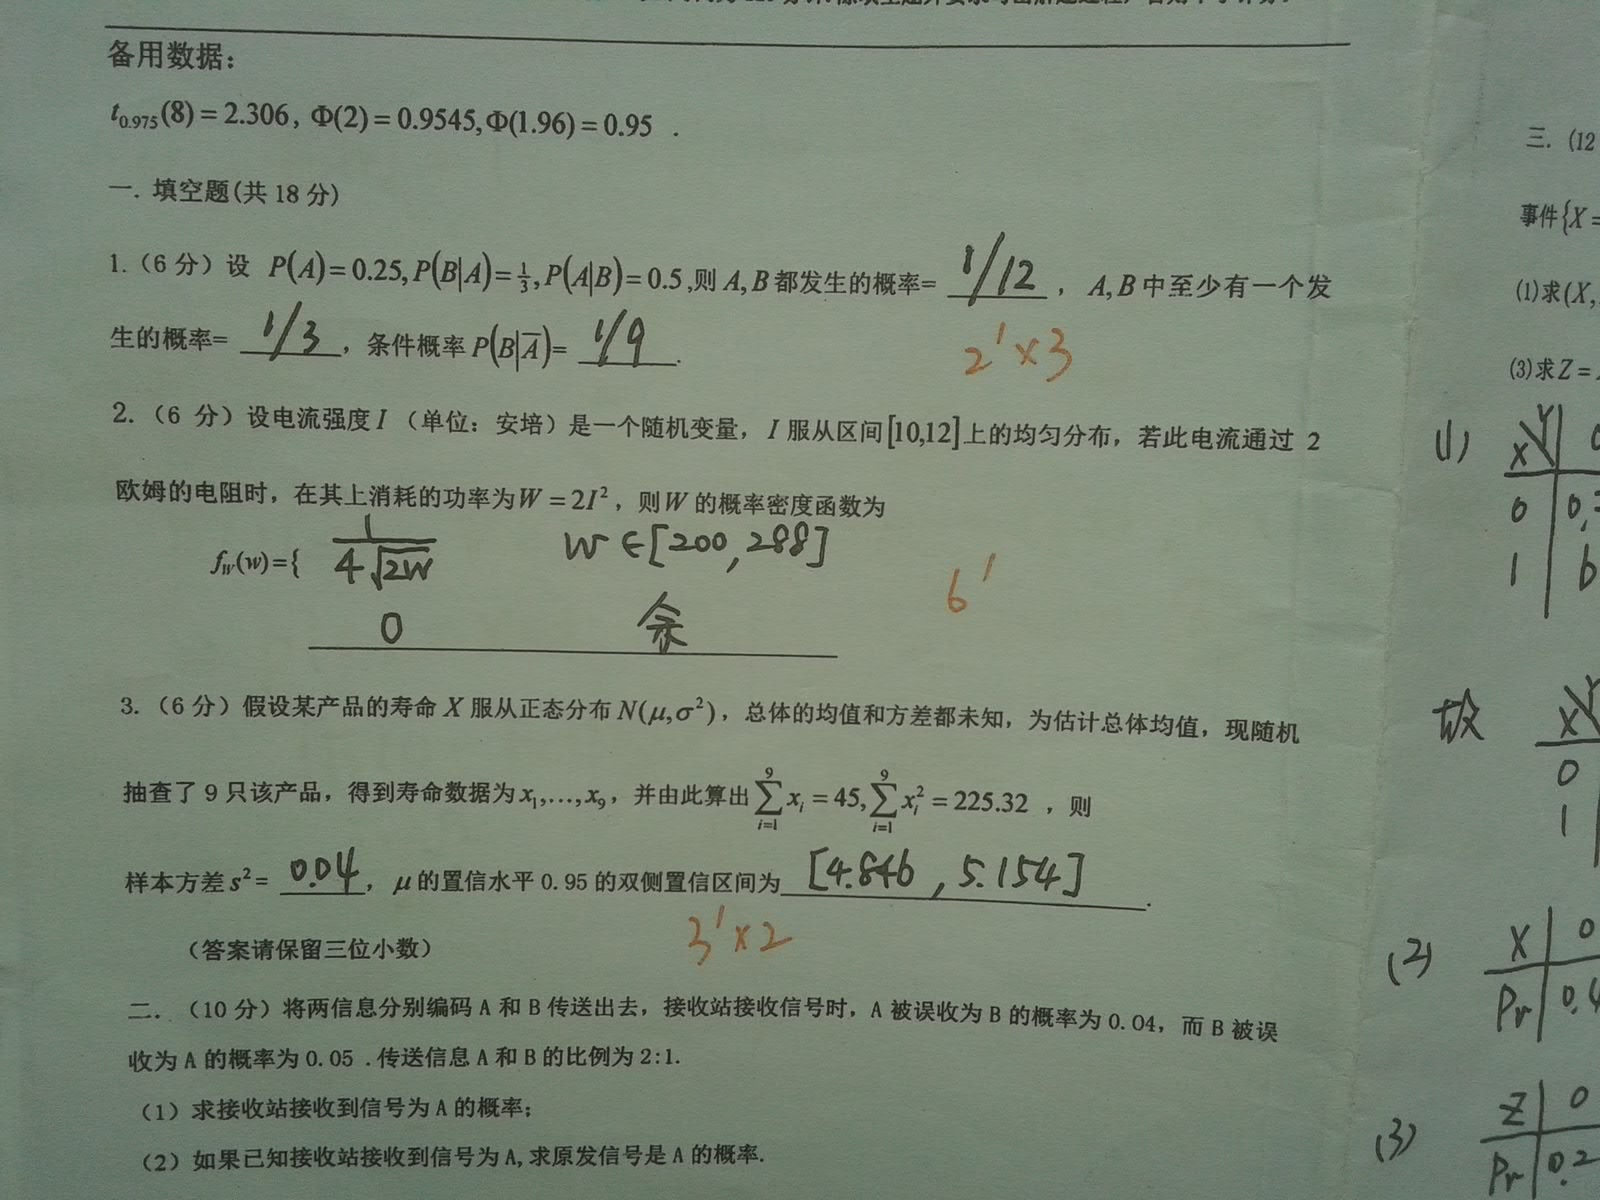 备用数据：
t0.975(8) = 2.306, Φ(2) = 0.9545, Φ(1.96) = 0.95 .
一. 填空题(共 18 分)
1.（6 分）设 P(A) = 0.25, P(B|A) = 1/3, P(A|B) = 0.5 ,则 A, B 都发生的概率= 1/12 ， A, B 中至少有一个发
生的概率= 1/3 ，条件概率 P(B|A̅)= 1/9 .
2'×3
2.（6 分）设电流强度 I （单位：安培）是一个随机变量， I 服从区间[10,12]上的均匀分布，若此电流通过 2
欧姆的电阻时，在其上消耗的功率为 W = 2I²，则 W 的概率密度函数为
fW(w)={ 1/(4√2W) W∈[200,288]
0 余
6'
3.（6 分）假设某产品的寿命 X 服从正态分布 N(μ,σ²)，总体的均值和方差都未知，为估计总体均值，现随机
抽查了 9 只该产品，得到寿命数据为 x1,...,x9，并由此算出 ∑(i=1→9) xi = 45, ∑(i=1→9) xi² = 225.32 ，则
样本方差 s² = 0.04 ， μ 的置信水平 0.95 的双侧置信区间为 [4.846 , 5.154] .
3'×2
（答案请保留三位小数）
二.（10 分）将两信息分别编码 A 和 B 传送出去，接收站接收信号时，A 被误收为 B 的概率为 0.04，而 B 被误
收为 A 的概率为 0.05 .传送信息 A 和 B 的比例为 2:1.
（1）求接收站接收到信号为 A 的概率;
（2）如果已知接收站接收到信号为 A,求原发信号是 A 的概率.
三. (12
事件{X =
(1)求(X,
(3)求 Z =
(1) X Y 0
0 0.
1
故 X Y
0
1
(2) X 0
Pr 0.4
(3) Z 0
Pr 0.2